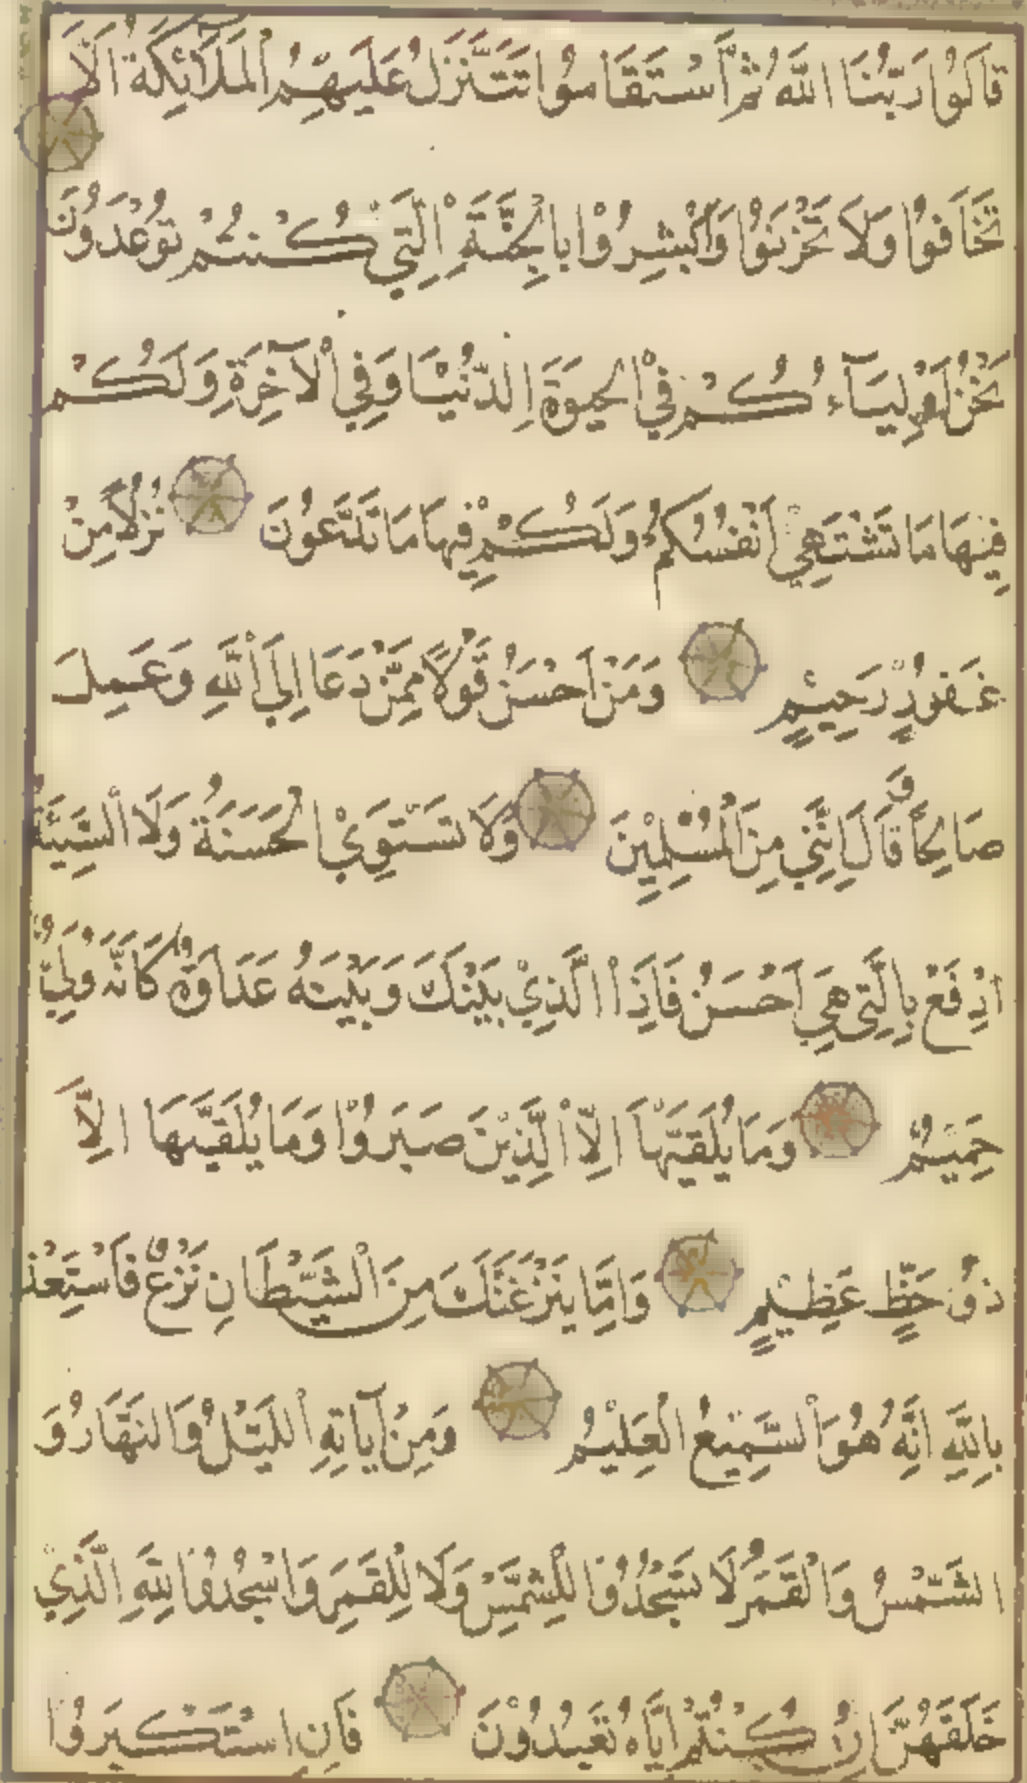 قَالُوا رَبُّنَا اللَّهُ ثُمَّ اسْتَقَامُوا تَتَنَزَّلُ عَلَيْهِمُ الْمَلَائِكَةُ أَلَّا
تَخَافُوا وَلَا تَحْزَنُوا وَأَبْشِرُوا بِالْجَنَّةِ الَّتِي كُنْتُمْ تُوعَدُونَ
نَحْنُ أَوْلِيَاءُكُمْ فِي الْحَيٰوةِ الدُّنْيَا وَفِي الْآخِرَةِ وَلَكُمْ
فِيهَا مَا تَشْتَهِي أَنْفُسُكُمْ وَلَكُمْ فِيهَا مَا تَدَّعُونَ نُزُلًا مِنْ
غَفُورٍ رَحِيمٍ وَمَنْ أَحْسَنُ قَوْلًا مِمَّنْ دَعَا إِلَى اللَّهِ وَعَمِلَ
صَالِحًا وَقَالَ إِنَّنِي مِنَ الْمُسْلِمِينَ وَلَا تَسْتَوِي الْحَسَنَةُ وَلَا السَّيِّئَةُ
ادْفَعْ بِالَّتِي هِيَ أَحْسَنُ فَإِذَا الَّذِي بَيْنَكَ وَبَيْنَهُ عَدَاوَةٌ كَأَنَّهُ وَلِيٌّ
حَمِيمٌ وَمَا يُلَقّٰيهَا إِلَّا الَّذِينَ صَبَرُوا وَمَا يُلَقّٰيهَا إِلَّا
ذُو حَظٍّ عَظِيمٍ وَإِمَّا يَنْزَغَنَّكَ مِنَ الشَّيْطَانِ نَزْغٌ فَاسْتَعِذْ
بِاللَّهِ إِنَّهُ هُوَ السَّمِيعُ الْعَلِيمُ وَمِنْ آيَاتِهِ اللَّيْلُ وَالنَّهَارُ وَ
الشَّمْسُ وَالْقَمَرُ لَا تَسْجُدُوا لِلشَّمْسِ وَلَا لِلْقَمَرِ وَاسْجُدُوا لِلَّهِ الَّذِي
خَلَقَهُنَّ إِنْ كُنْتُمْ إِيَّاهُ تَعْبُدُونَ فَإِنِ اسْتَكْبَرُوا